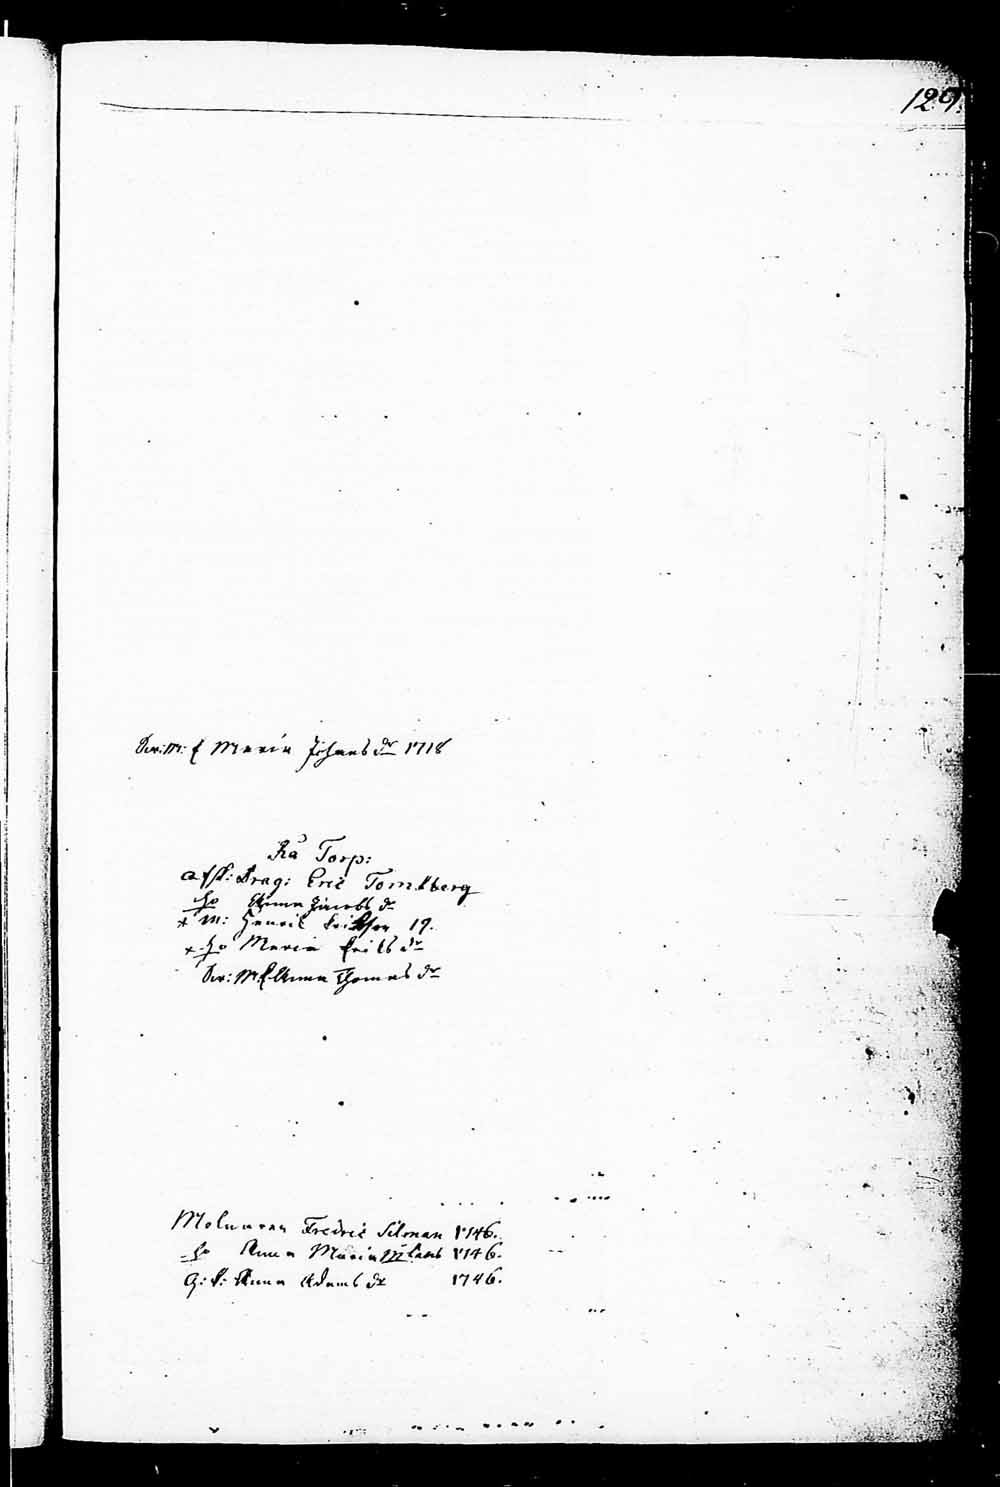 129.
Sw: m: f Maria Johans dr 1718
Rå Torp:
afsk: Drag: Eric Tornberg
Ho Anna Jacobs dr
* m: Henric Ericsson 19.
* Ho Maria Erics dr
Sw: M f Anna Thomas dr
Molnaren Fredric Silman 1746.
Ho Anna Maria 1746.
G: k: Anna Adams dr 1746.